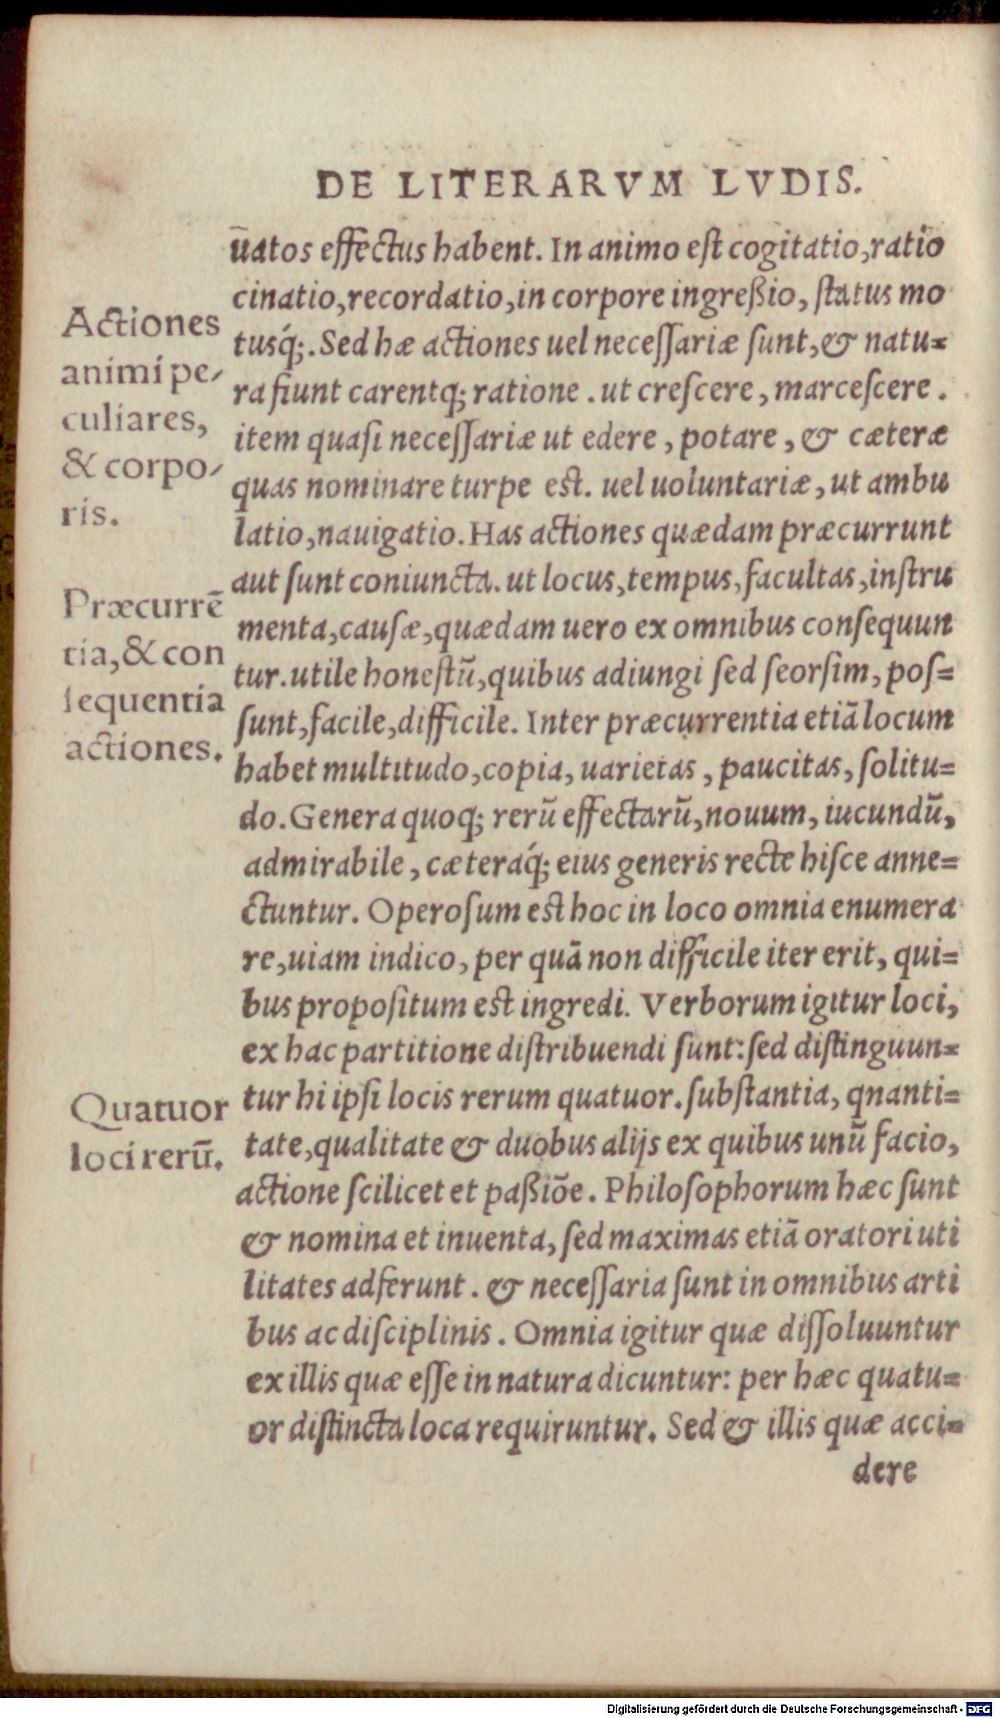 DE LITERARVM LVDIS.
ūatos effectus habent. In animo est cogitatio,ratio
cinatio,recordatio,in corpore ingreßio, status mo
tusq́;. Sed hæ actiones uel necessariæ sunt,& natu=
ra fiunt carentq; ratione . ut crescere, marcescere .
item quasi necessariæ ut edere , potare , & cæteræ
quas nominare turpe est. uel uoluntariæ, ut ambu
latio,nauigatio. Has actiones quædam præcurrunt
aut sunt coniuncta. ut locus,tempus,facultas,instru
menta,causæ,quædam uero ex omnibus consequun
tur.utile honestū,quibus adiungi sed seorsim, pos=
sunt,facile,difficile. Inter præcurrentia etiā locum
habet multitudo,copia, uarietas , paucitas, solitu=
do. Genera quoq; rerū effectarū,nouum, iucundū,
admirabile , cæteraq́; eius generis recte hisce anne=
ctuntur. Operosum est hoc in loco omnia enumera
re,uiam indico, per quā non difficile iter erit, qui=
bus propositum est ingredi. Verborum igitur loci,
ex hac partitione distribuendi sunt:sed distinguun=
tur hi ipsi locis rerum quatuor.substantia, qnanti=
tate,qualitate & duobus alijs ex quibus unū facio,
actione scilicet et paßiōe. Philosophorum hæc sunt
& nomina et inuenta, sed maximas etiā oratori uti
litates adferunt . & necessaria sunt in omnibus arti
bus ac disciplinis . Omnia igitur quæ dissoluuntur
ex illis quæ esse in natura dicuntur: per hæc quatu=
or distincta loca requiruntur. Sed & illis quæ acci=
dere
Actiones
animi pe/
culiares,
& corpo/
ris.
Præcurrē
tia,& con
sequentia
actiones.
Quatuor
loci rerū.
Digitalisierung gefördert durch die Deutsche Forschungsgemeinschaft - DFG